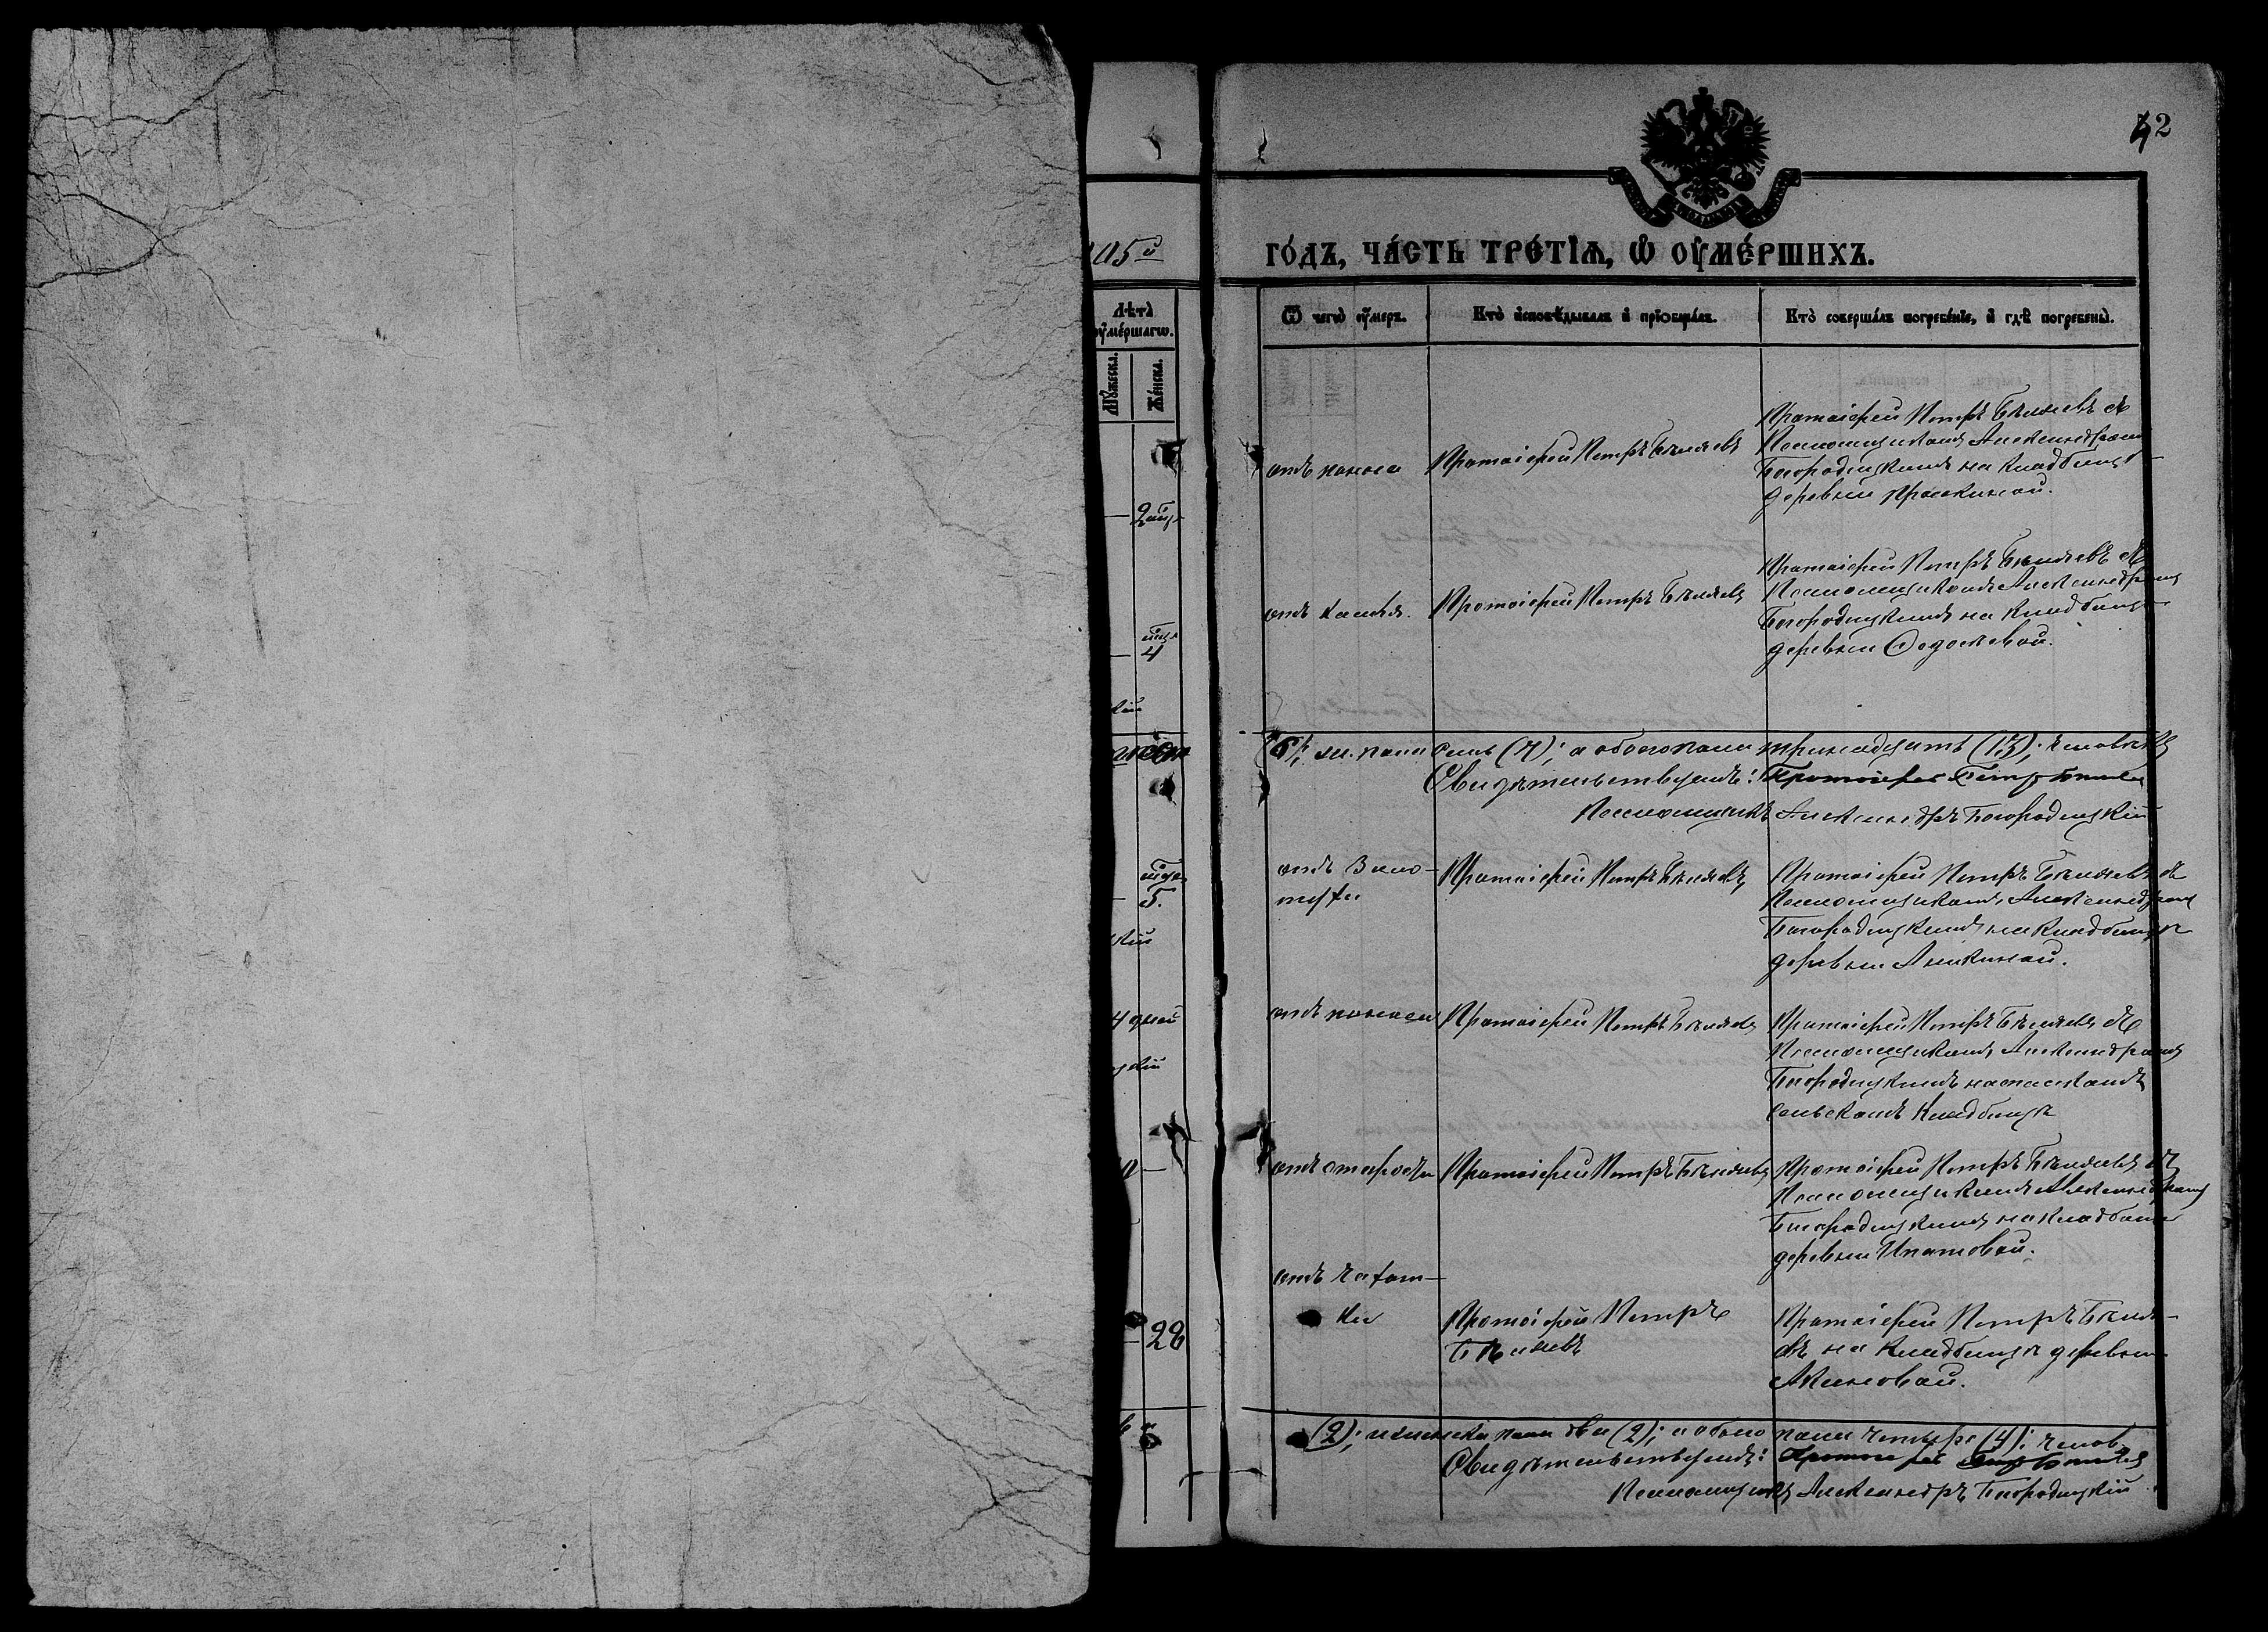 42
05й
го́дъ, ча́сть тре́тїѧ, ѡ҆ ᲂу҆ме́ршихъ.
Лѣта̀
ᲂу҆ме́ршагѡ.
Мꙋ́жеска.
Же́нска.
Ѿ чегѡ̀ ᲂу҆́меръ.
Кто̀ и҆сповѣ́дывалъ и҆ прїобща́лъ.
Кто̀ соверша́лъ погребе́нїе, и҆ гдѣ̀ погребены̀.
отъ поноса
Протоіерей Петръ Бѣляевъ
Протоіерей Петръ Бѣляевъ съ
Псаломщикомъ Александромъ
Богородицкимъ на кладбищѣ
деревни
отъ кашля.
Протоіерей Петръ Бѣляевъ
Протоіерей Петръ Бѣляевъ съ
Псаломщикомъ Александромъ
Богородицкимъ на кладбищѣ
деревни
4
кій
жен. пола семь (7); а обоего пола тринадцать (13); человѣкъ
Свидѣтельствуемъ: Протоіерей Петръ Бѣляевъ
Псаломщикъ Александръ Богородицкій
5.
отъ Золо-
тухи
Протоіерей Петръ Бѣляевъ
Протоіерей Петръ Бѣляевъ съ
Псаломщикомъ Александромъ
Богородицкимъ на кладбищѣ
деревни Аникиной.
4 дней
отъ поноса
Протоіерей Петръ Бѣляевъ
Протоіерей Петръ Бѣляевъ съ
Псаломщикомъ Александромъ
Богородицкимъ на
сельскомъ кладбищѣ
отъ старости
Протоіерей Петръ Бѣляевъ
Протоіерей Петръ Бѣляевъ съ
Псаломщикомъ Александромъ
Богородицкимъ на кладбищѣ
деревни Ипатовой.
28
отъ чахот-
ки
Протоіерей Петръ
Бѣляевъ
Протоіерей Петръ Бѣляе-
въ на кладбищѣ деревни
Акимовой.
(2); женска пола два (2); а обоего пола четыре (4); челов.
Свидѣтельствуемъ: Протоіерей Петръ Бѣляевъ
Псаломщикъ Александръ Богородицкій